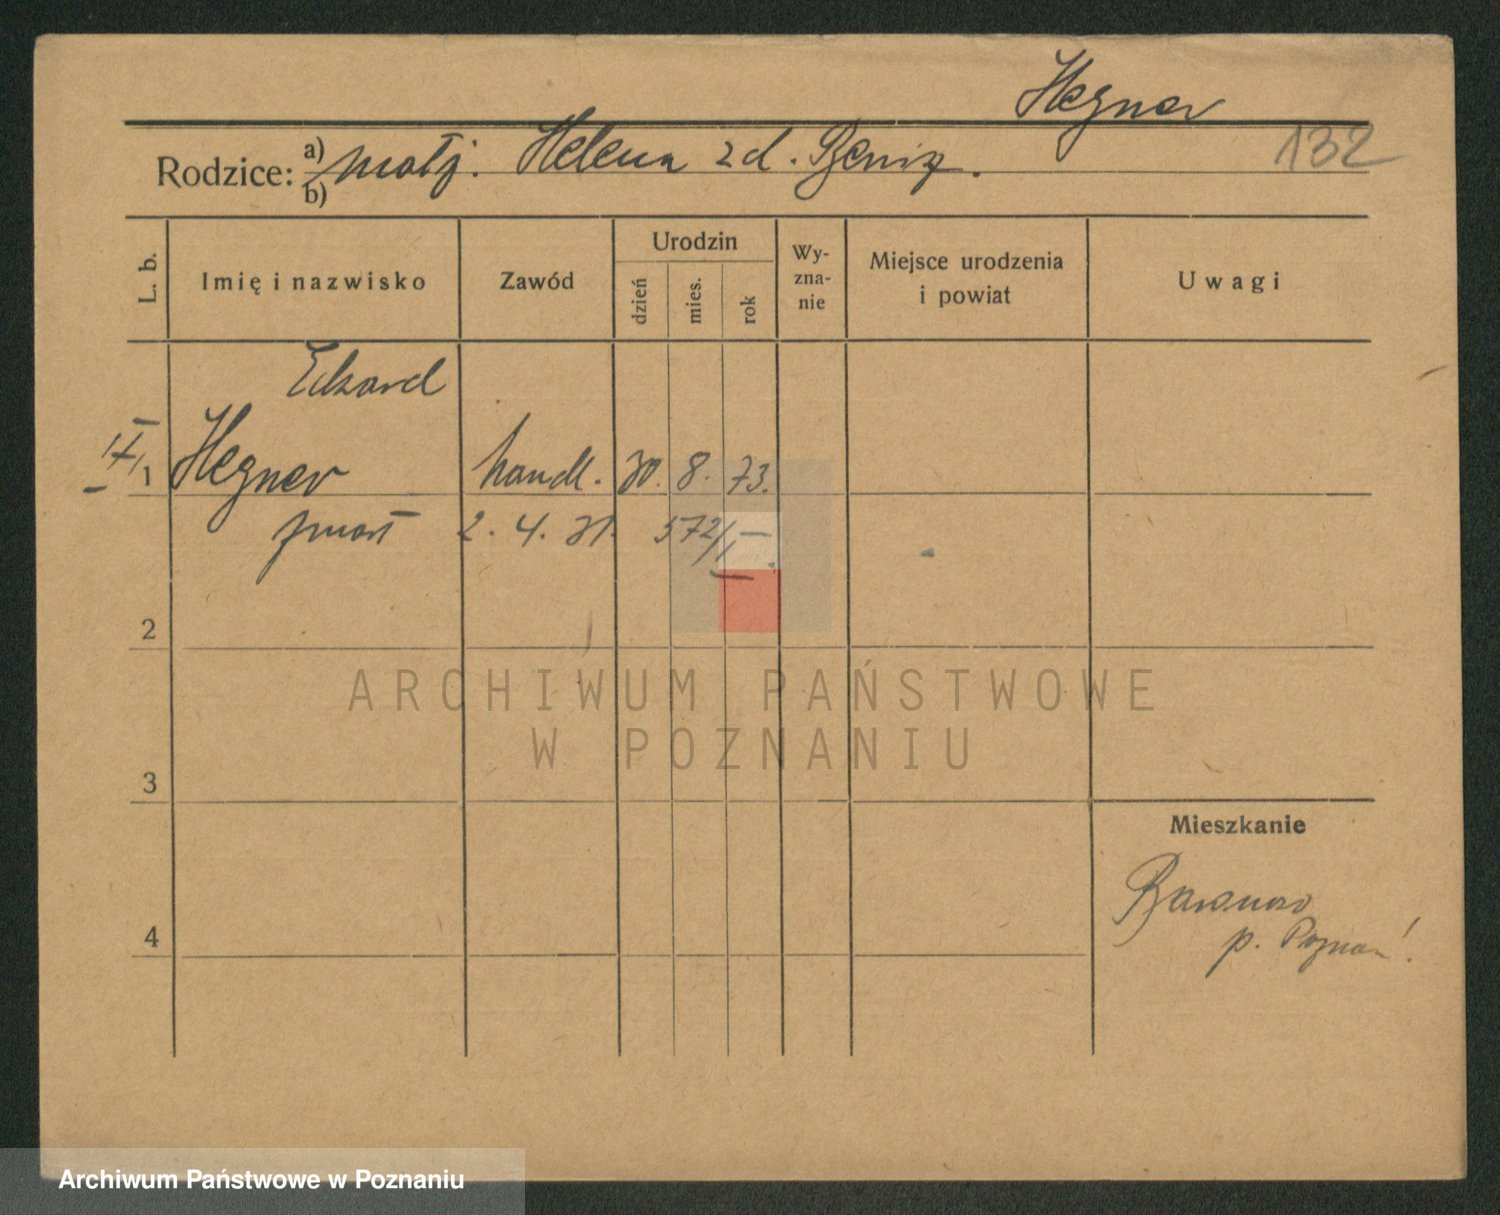 Hegner
132
Rodzice: a) małż. Helena z d.
b)
L. b. Imię i nazwisko Zawód Urodzin dzień mies. rok Wy-zna-nie Miejsce urodzenia i powiat Uwagi
Edward
1 Hegner handl. 30. 8. 73.
zmarł 2. 4. 31. 572/I
2
ARCHIWUM PAŃSTWOWE
W POZNANIU
3
Mieszkanie
4
p. Poznań.
Archiwum Państwowe w Poznaniu